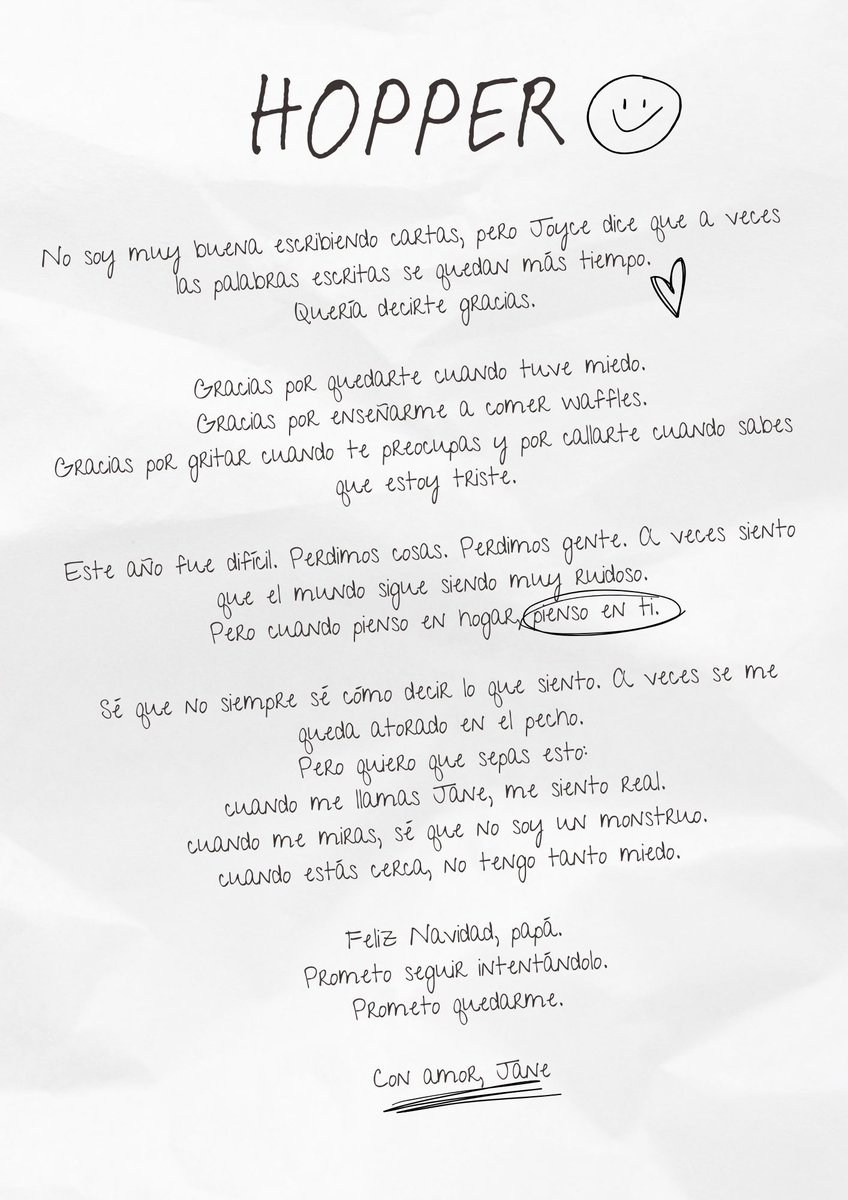 HOPPER
No soy muy buena escribiendo cartas, pero Joyce dice que a veces
las palabras escritas se quedan más tiempo.
Quería decirte gracias.
Gracias por quedarte cuando tuve miedo.
Gracias por enseñarme a comer waffles.
Gracias por gritar cuando te preocupas y por callarte cuando sabes
que estoy triste.
Este año fue difícil. Perdimos cosas. Perdimos gente. A veces siento
que el mundo sigue siendo muy ruidoso.
Pero cuando pienso en hogar, pienso en ti.
Sé que no siempre sé cómo decir lo que siento. A veces se me
queda atorado en el pecho.
Pero quiero que sepas esto:
cuando me llamas Jane, me siento real.
cuando me miras, sé que no soy un monstruo.
cuando estás cerca, no tengo tanto miedo.
Feliz Navidad, papá.
Prometo seguir intentándolo.
Prometo quedarme.
Con amor, Jane